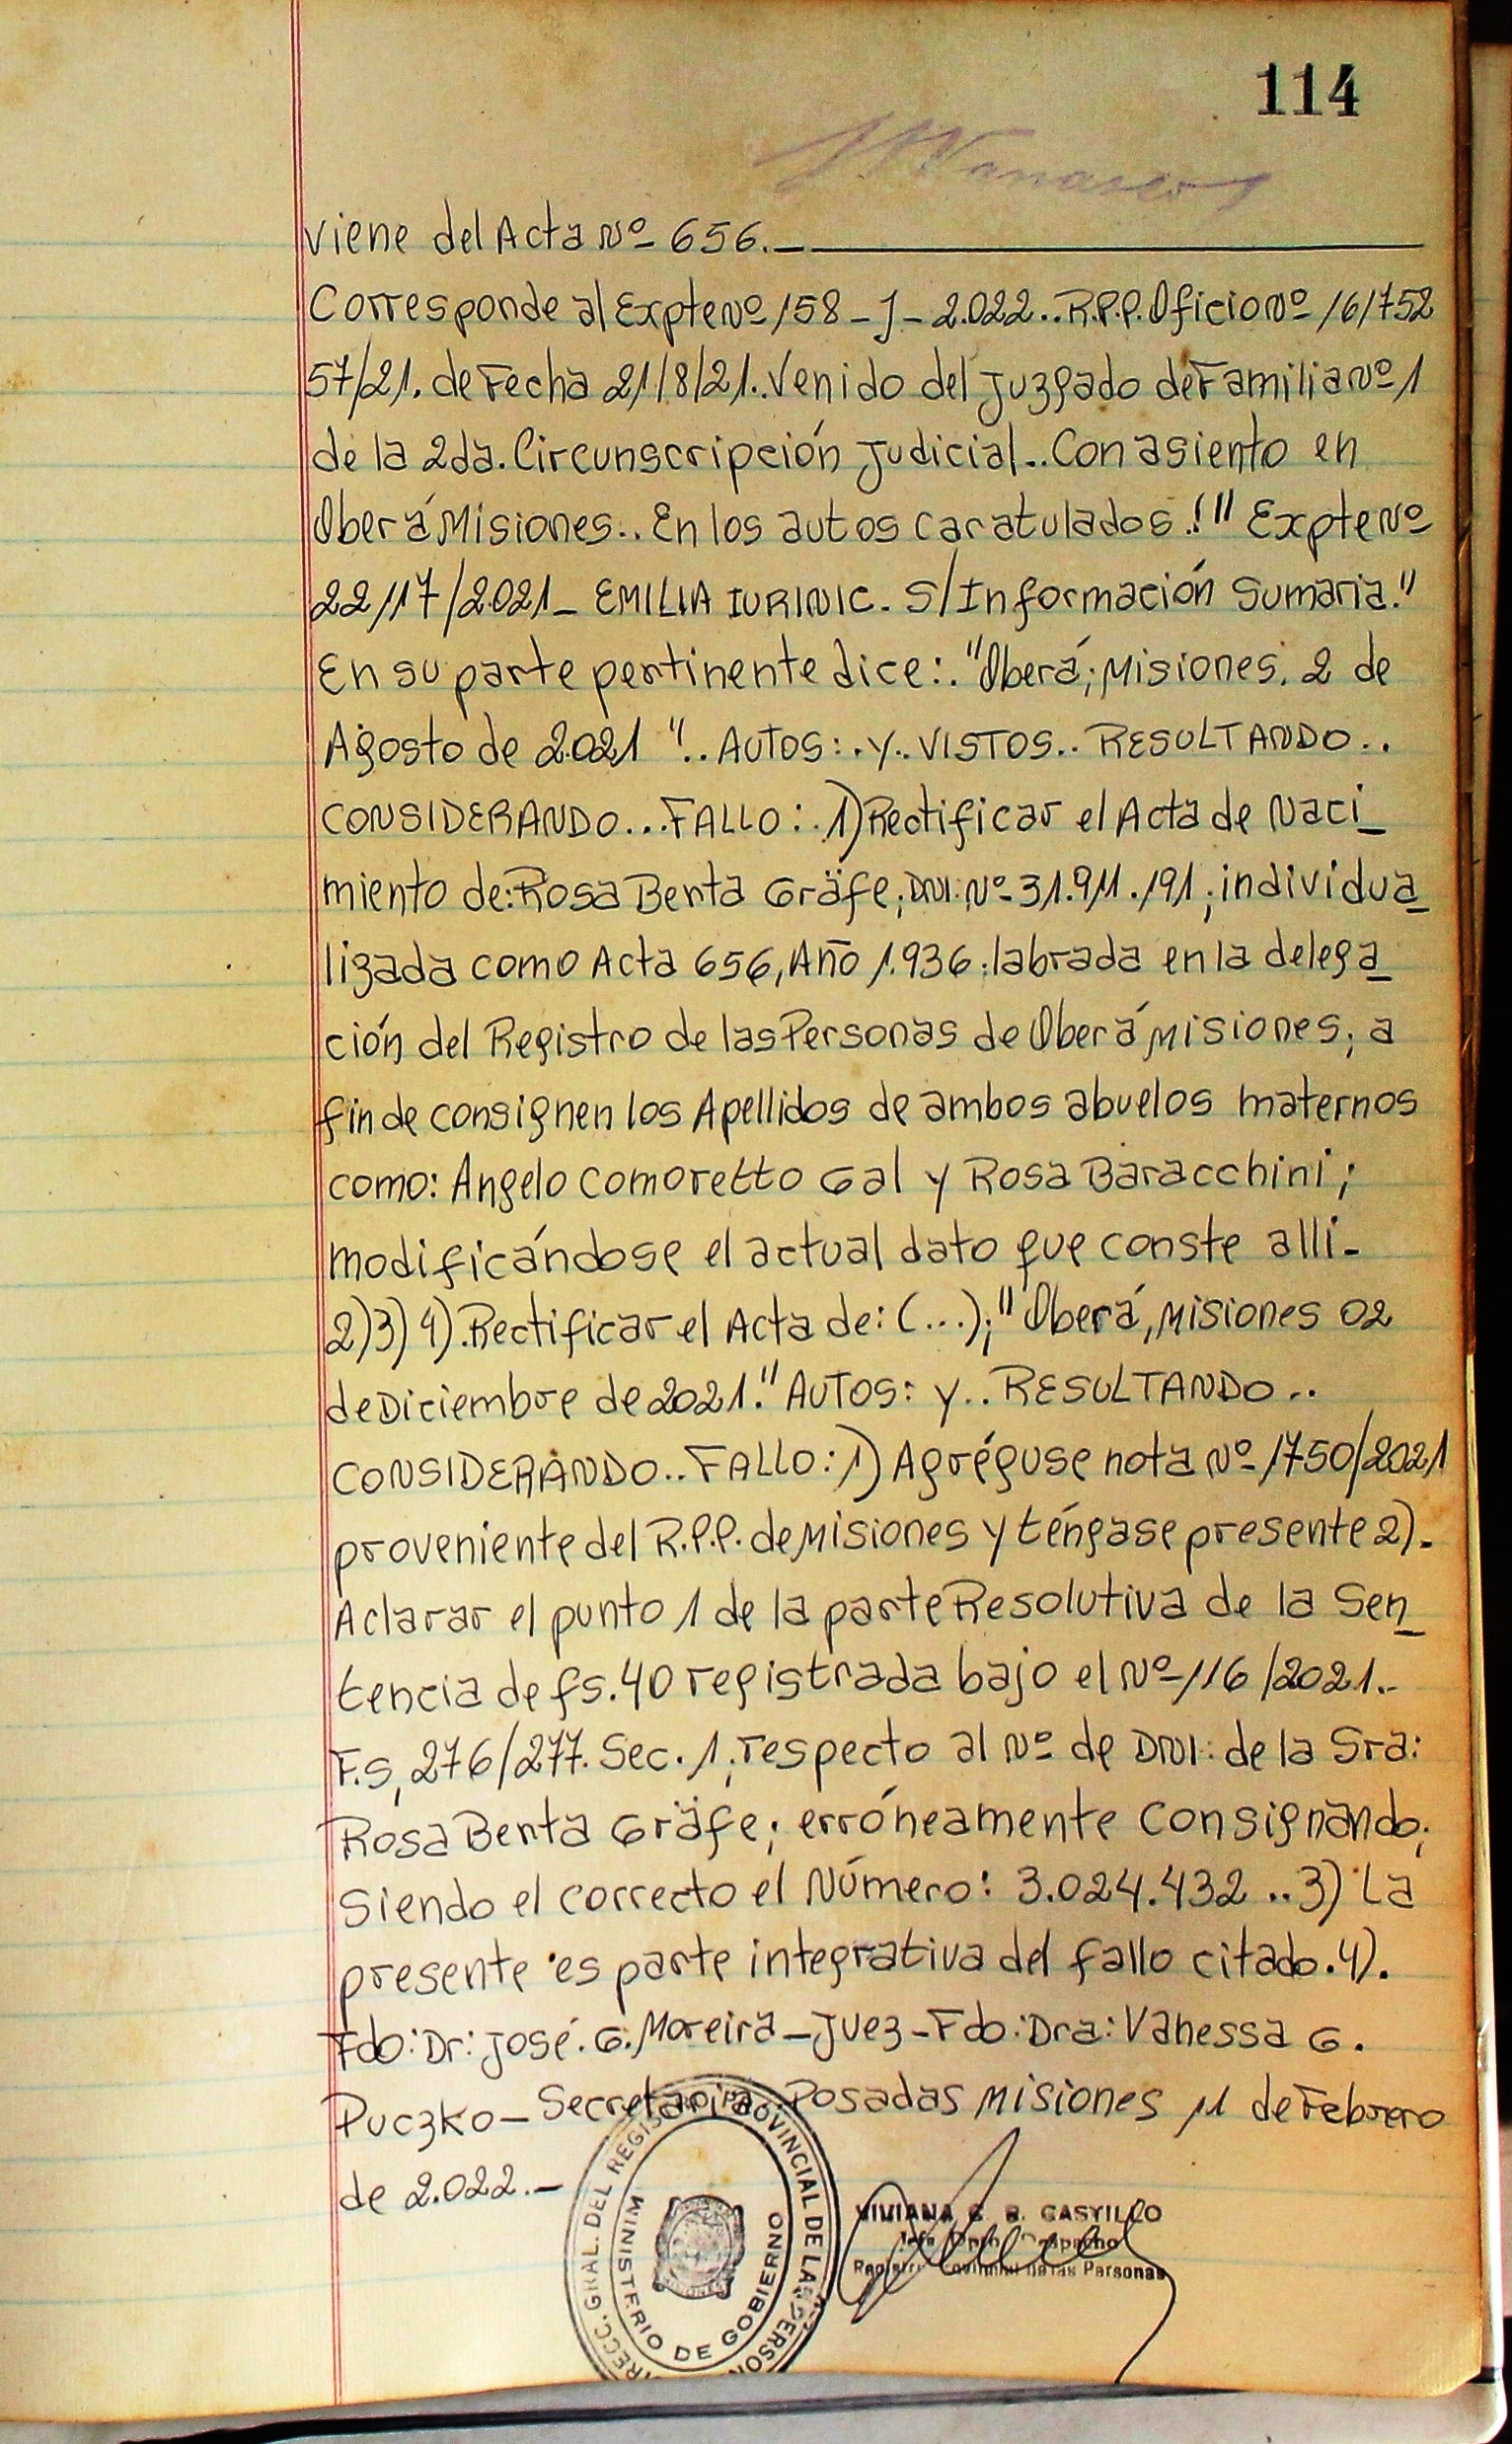 114
viene del Acta Nº 656.-
Corresponde al Expte Nº 158-J-2.022.. R.P.P. Oficio Nº 161752
57/21. de Fecha 21/8/21. Venido del Juzgado de Familia Nº 1
de la 2da. Circunscripción Judicial.. Con asiento en
Oberá Misiones.. En los autos caratulados.!" Expte Nº
22117/2.021- EMILIA IURINIC. S/Información Sumaria."
En su parte pertinente dice:. "Oberá; Misiones. 2 de
Agosto de 2.021 ".. AUTOS:. Y.. VISTOS.. RESULTANDO..
CONSIDERANDO...FALLO:. 1) Rectificar el Acta de Naci_
miento de: Rosa Berta Gräfe; DNI: Nº 31.911.191; individua_
lizada como Acta 656, Año 1.936; labrada en la delega_
ción del Registro de las Personas de Oberá Misiones; a
fin de consignen los Apellidos de ambos abuelos maternos
como: Angelo Comoretto Gal y Rosa Baracchini;
modificándose el actual dato que conste alli-
2)3)4). Rectificar el Acta de: (...); "Oberá, Misiones 02
de Diciembre de 2021." AUTOS: y.. RESULTANDO..
CONSIDERANDO.. FALLO: 1) Agréguse nota Nº 1750/2021
proveniente del R.P.P. de Misiones y téngase presente 2).-
Aclarar el punto 1 de la parte Resolutiva de la Sen_
tencia de fs. 40 registrada bajo el Nº 116/2021..
F.S, 276/277. Sec. 1; respecto al Nº de DNI: de la Sra:
Rosa Berta Gräfe; erróneamente consignando;
Siendo el correcto el Número: 3.024.432 ..3) La
presente es parte integrativa del fallo citado. 4).
Fdo: Dr: José. G. Moreira-Juez-Fdo: Dra: Vanessa G.
Puczko- Secretaria. Posadas Misiones 11 de Febrero
de 2.022.-
DIRECC. GRAL. DEL REGISTRO PROVINCIAL DE LAS PERSONAS
MINISTERIO DE GOBIERNO
VIVIANA G. R. CASTILLO
Jefa Dpto. Despacho
Registro Provincial de las Personas